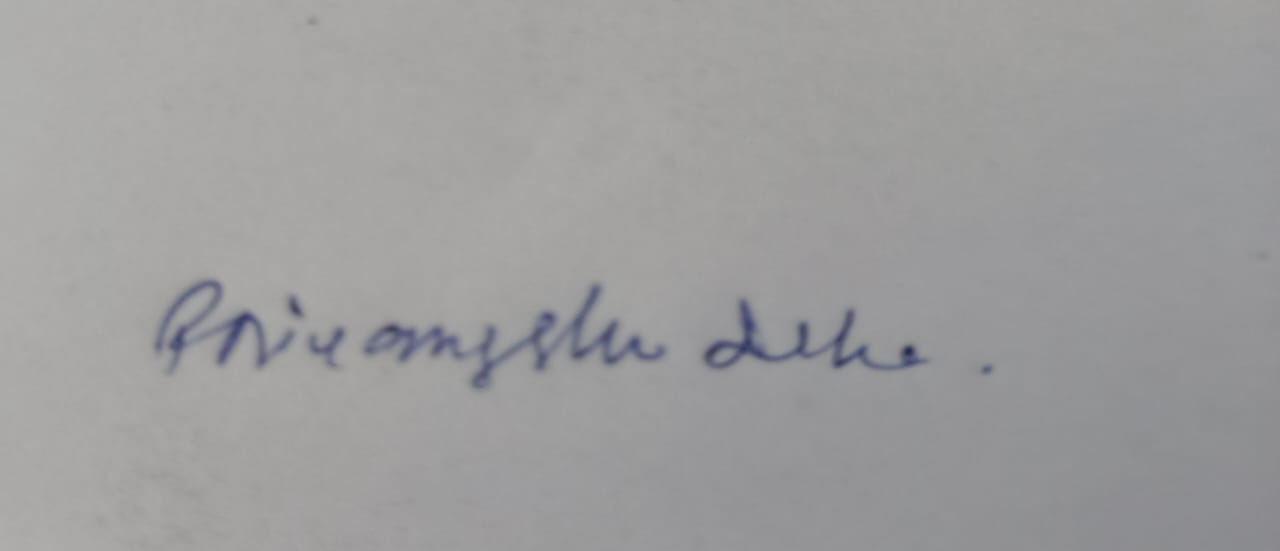 Priyamgshu Deka.